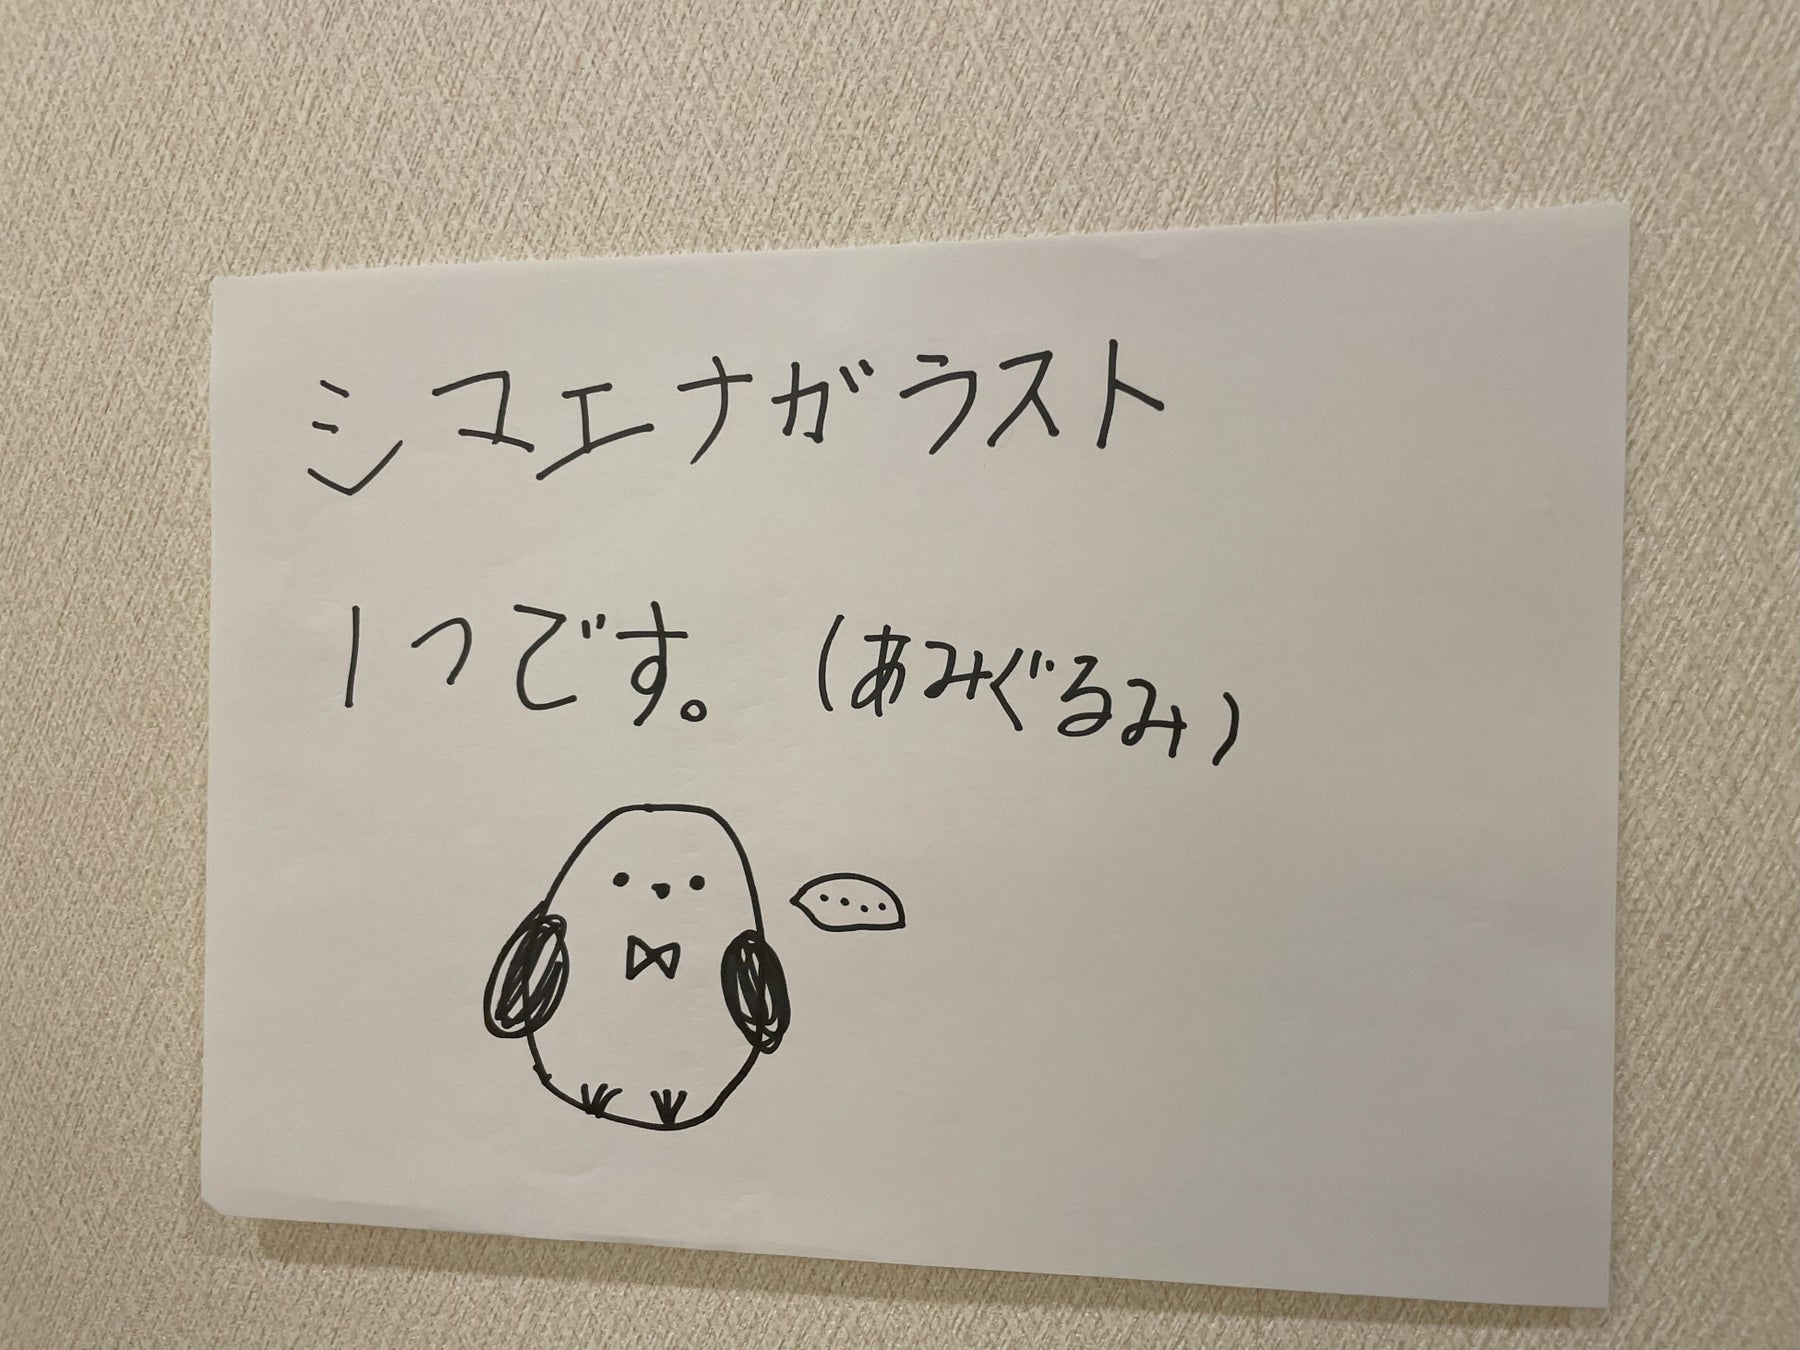 シマエナガラスト
1つです。(あみぐるみ)
....